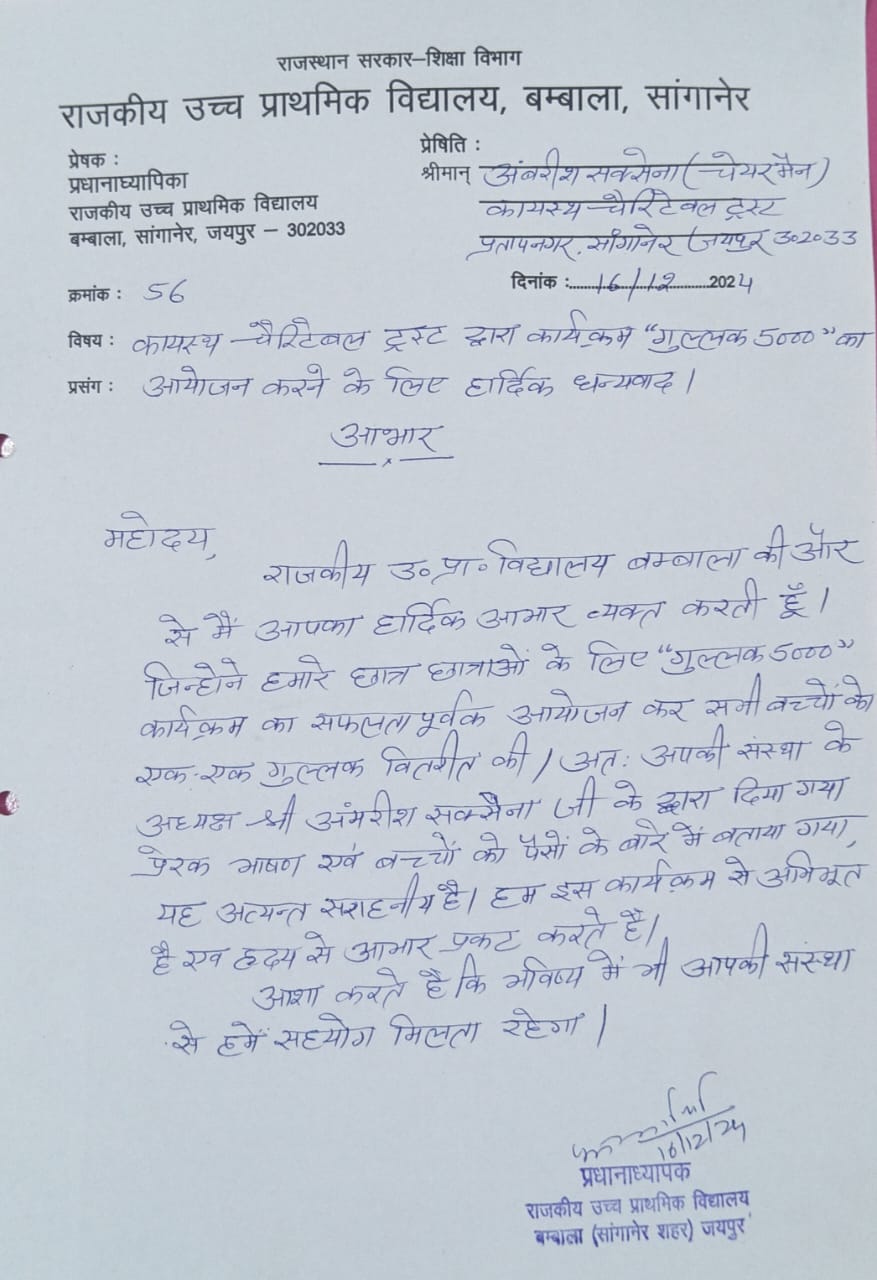 राजस्थान सरकार–शिक्षा विभाग
राजकीय उच्च प्राथमिक विद्यालय, बम्बाला, सांगानेर
प्रेषक :
प्रधानाध्यापिका
राजकीय उच्च प्राथमिक विद्यालय
बम्बाला, सांगानेर, जयपुर – 302033
प्रेषिति :
श्रीमान् अंबरीश सक्सेना (चेयरमैन)
कायस्थ चैरिटेबल ट्रस्ट
प्रतापनगर, साँगानेर (जयपुर 302033
क्रमांक : 56
दिनांक :.....16/12.....2024
विषय : कायस्थ चैरिटेबल ट्रस्ट द्वारा कार्यक्रम "गुल्लक 5000" का
प्रसंग : आयोजन करने के लिए हार्दिक धन्यवाद।
आभार
महोदय,
राजकीय उ॰ प्रा॰ विद्यालय बम्बाला की और
से मैं आपका हार्दिक आभार व्यक्त करती हूँ।
जिन्होने हमारे छात्र छात्राओं के लिए "गुल्लक 5000"
कार्यक्रम का सफलता पूर्वक आयोजन कर सभी बच्चों को
एक-एक गुल्लक वितरीत की। अत: अपकी संस्था के
अध्यक्ष श्री अंमरीश सक्सैना जी के द्वारा दिया गया
प्रेरक भाषण एवं बच्चों को पैसों के बारे में बताया गया,
यह अत्यन्त सराहनीय है। हम इस कार्यक्रम से अभिभूत
है एव ह्रदय से आभार प्रकट करते हैं।
आशा करते है कि भविष्य में भी आपकी संस्था
से हमें सहयोग मिलता रहेगा।
16/12/24
प्रधानाध्यापक
राजकीय उच्च प्राथमिक विद्यालय
बम्बाला (सांगानेर शहर) जयपुर